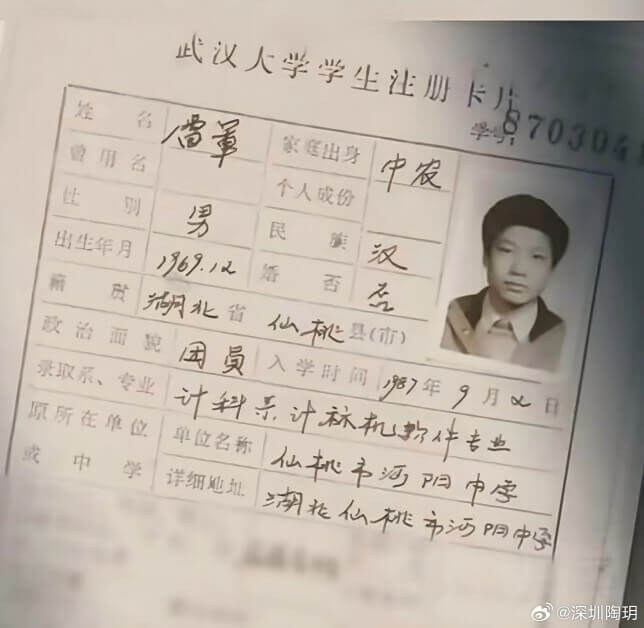 武汉大学学生注册卡片
学号: 870304
姓名 雷军 家庭出身 中农
曾用名 个人成份
性别 男 民族 汉
出生年月 1969.12 婚否 否
籍贯 湖北省 仙桃县(市)
政治面貌 团员 入学时间 1987年9月2日
录取系、专业 计科系计标机软件专业
原所在单位或中学 单位名称 仙桃市沔阳中学
详细地址 湖北仙桃市沔阳中学
@深圳陶玥